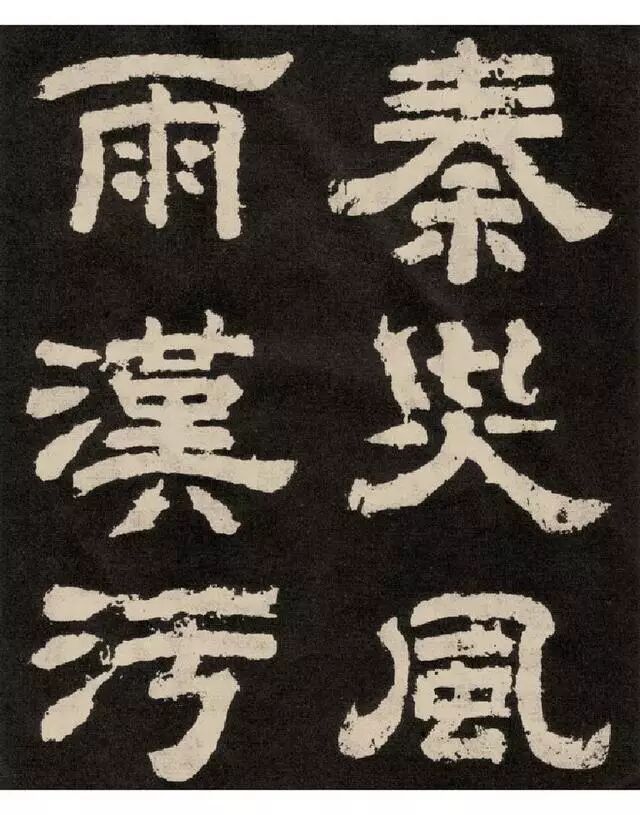 秦風
雨漢污